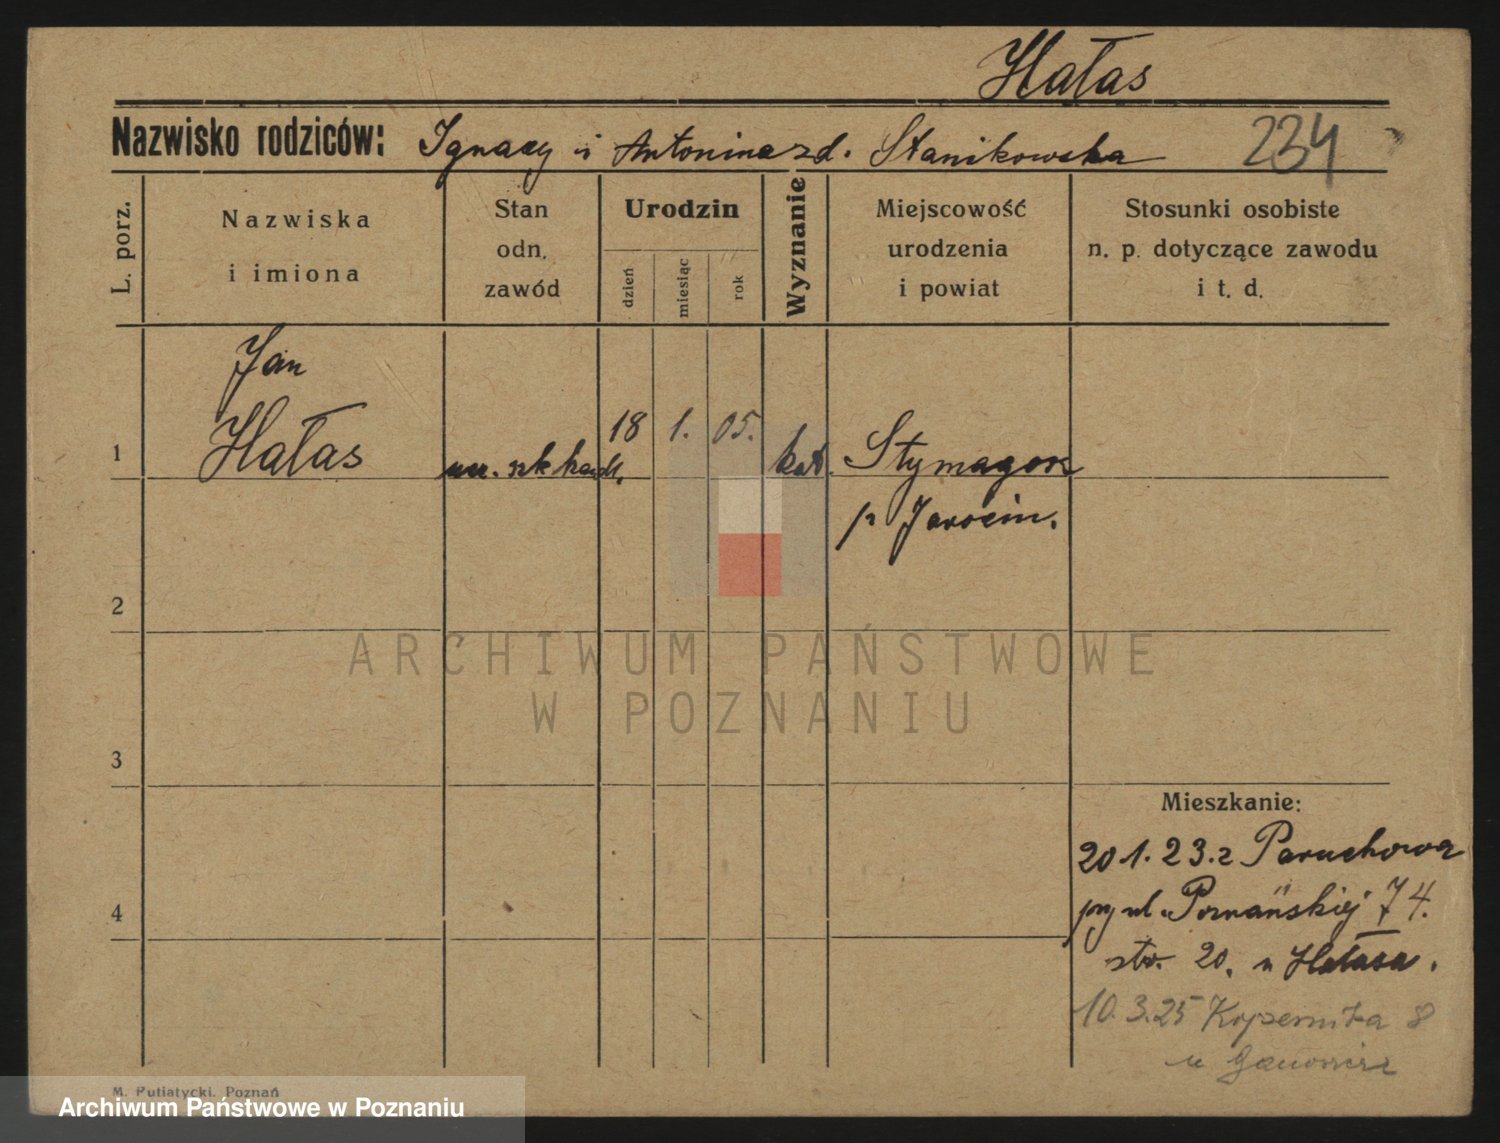 Hałas
Nazwisko rodziców: Ignacy i Antonina zd. Stanikowska 234
L. porz.
Nazwiska
i imiona
Stan
odn.
zawód
Urodzin
dzień
miesiąc
rok
Wyznanie
Miejscowość
urodzenia
i powiat
Stosunki osobiste
n. p. dotyczące zawodu
i t. d.
Jan
1 Hałas ucz. szk handl. 18 1. 05. kat.
p Jarocin.
2
ARCHIWUM PAŃSTWOWE
W POZNANIU
3
Mieszkanie:
20 1. 23. z Paruchowa
4
przy ul. Poznańskiej 74.
str. 20. u Hałasa.
10.3.25 Kopernika 8
u
M. Putiatycki, Poznań
Archiwum Państwowe w Poznaniu